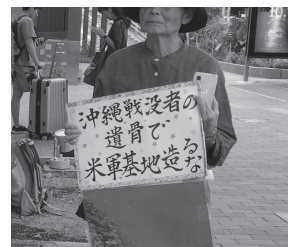 沖縄戦没者の
遺骨で
米軍基地造るな